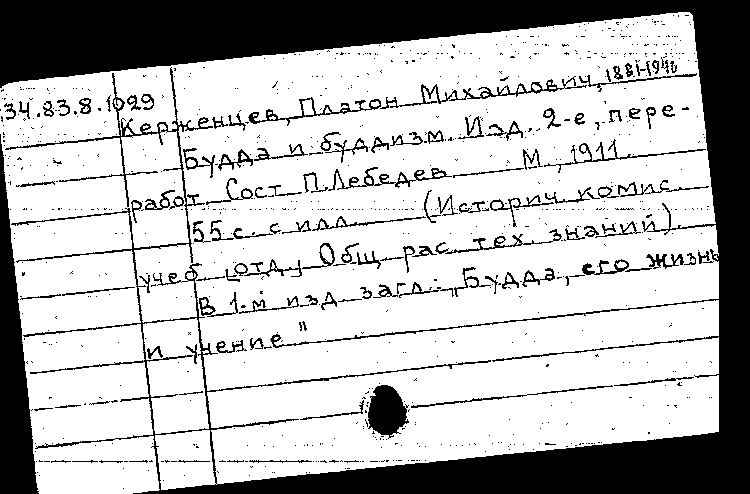 34.83.8.1029
Керженцев, Платон Михайлович, 1881-1940
Будда и буддизм. Изд. 2-е, пере-
работ. Сост. П. Лебедев М., 1911.
55 с. с илл. (Историч. комис.
учеб. отд. Общ. рас. тех. знаний).
В 1-м изд. загл.: "Будда, его жизнь
и учение"